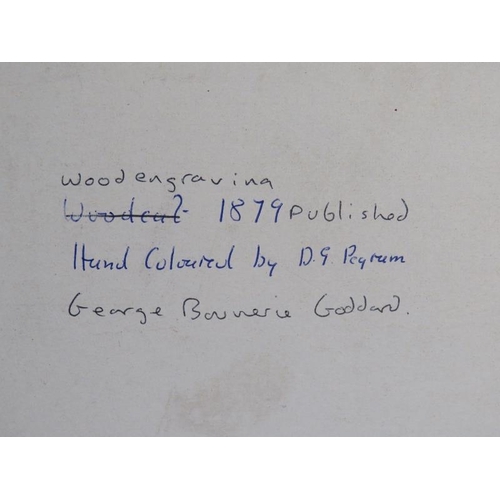 wood engraving
Woodcut - 1879 Published
Hand Coloured by D.G. Pegrum
George Bouverie Goddard.